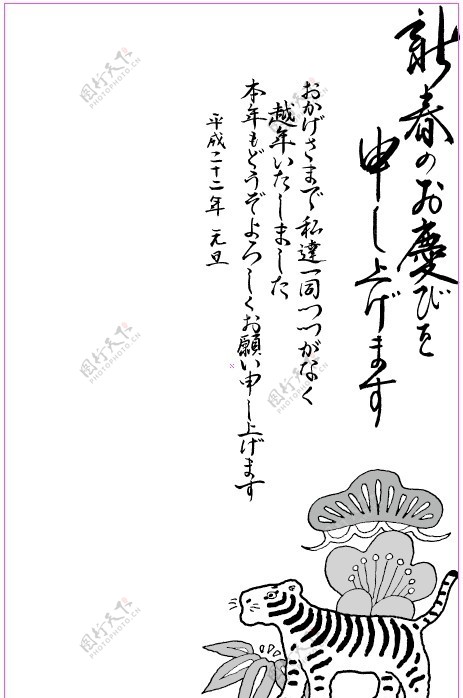 新春のお慶びを
申し上げます
おかげさまで私達一同つつがなく
越年いたしました
本年もどうぞよろしくお願い申し上げます
平成二十二年 元旦
图行天下
PHOTOPHOTO.CN
图行天下
PHOTOPHOTO.CN
图行天下
PHOTOPHOTO.CN
图行天下
PHOTOPHOTO.CN
图行天下
PHOTOPHOTO.CN
图行天下
PHOTOPHOTO.CN